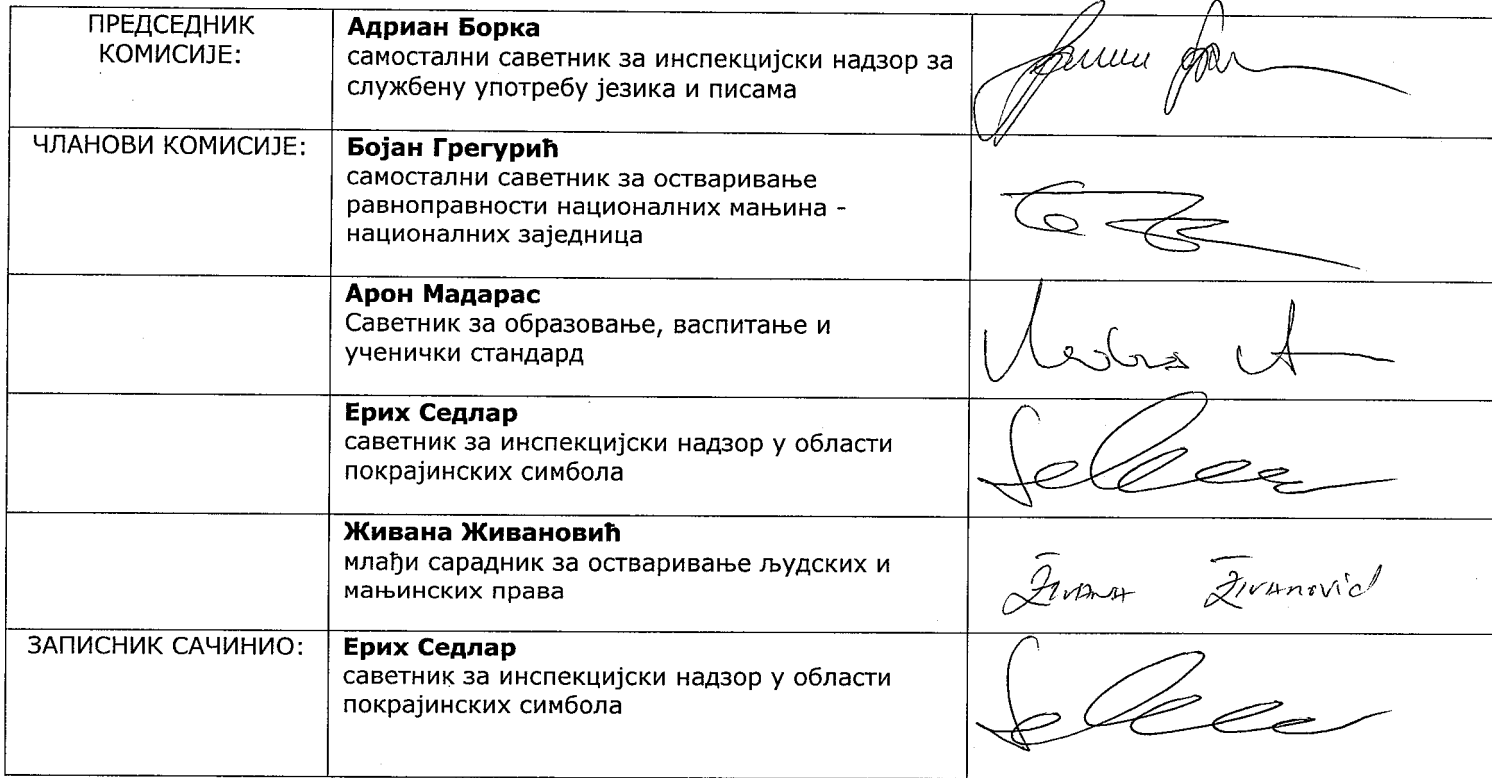 ПРЕДСЕДНИК
КОМИСИЈЕ:
Адриан Борка
самостални саветник за инспекцијски надзор за
службену употребу језика и писама
ЧЛАНОВИ КОМИСИЈЕ:
Бојан Грегурић
самостални саветник за остваривање
равноправности националних мањина -
националних заједница
Арон Мадарас
Саветник за образовање, васпитање и
ученички стандард
Ерих Седлар
саветник за инспекцијски надзор у области
покрајинских симбола
Живана Живановић
млађи сарадник за остваривање људских и
мањинских права
Živana Živanović
ЗАПИСНИК САЧИНИО:
Ерих Седлар
саветник за инспекцијски надзор у области
покрајинских симбола